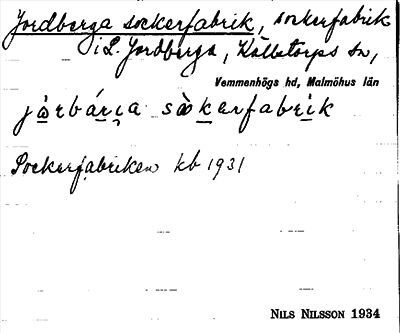 Jordberga sockerfabrik, sockerfabrik
i L. Jordberga, Källstorps sn,
Vemmenhögs hd, Malmöhus län
sockerfabrik
Sockerfabriken kb 1931
NILS NILSSON 1934